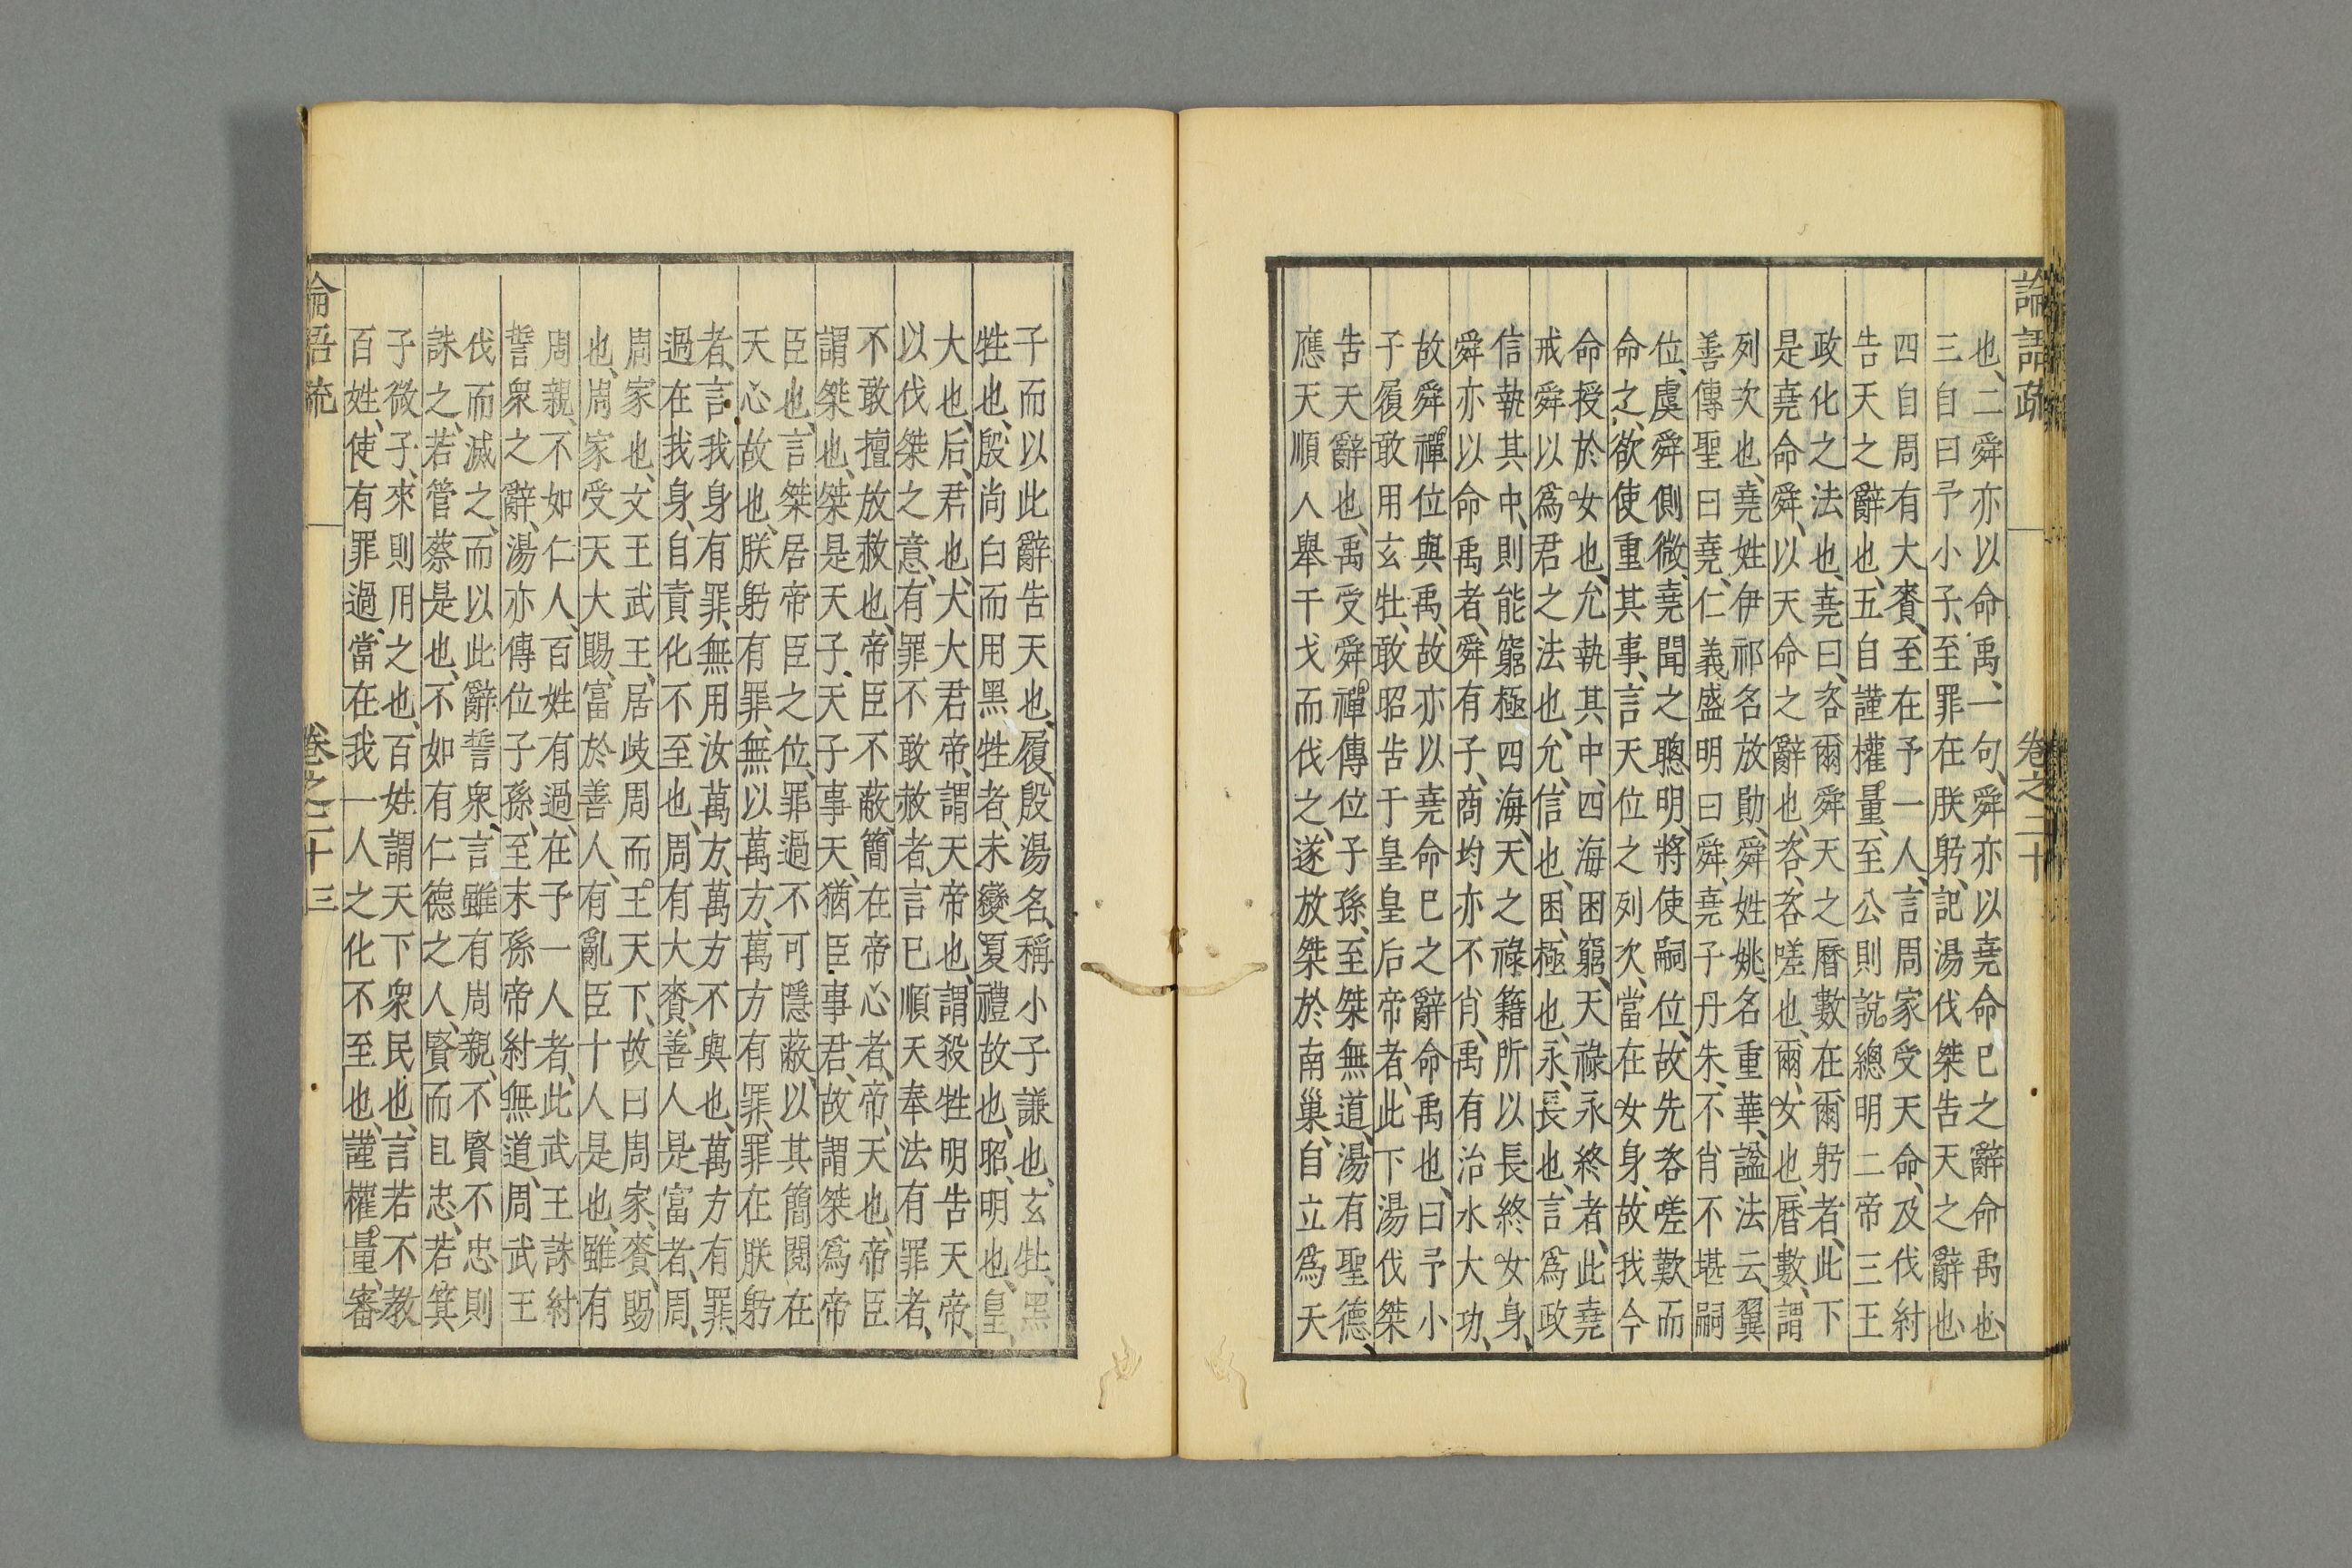 論語疏
卷之二十
也、二舜亦以命禹、一句、舜亦以堯命巳之辭命禹也、
三自曰予小子、至罪在朕躬、記湯伐桀告天之辭也、
四自周有大賚、至在予一人、言周家受天命、及伐紂
告天之辭也、五自謹權量、至公則說、總明二帝三王
政化之法也、堯曰、咨爾舜天之曆數在爾躬者、此下
是堯命舜、以天命之辭也、咨、咨嗟也、爾、女也、曆數、謂
列次也、堯姓伊祁名放勛、舜姓姚、名重華、謚法云、翼
善傳聖曰堯、仁義盛明曰舜、堯子丹朱、不肖不堪嗣
位、虞舜側微、堯聞之聰明、將使嗣位、故先咨嗟歎而
命之、欲使重其事、言天位之列次、當在女身、故我今
命授於女也、允執其中、四海困窮、天祿永終者、此堯
戒舜以爲君之法也、允、信也、困、極也、永、長也、言爲政
信執其中、則能窮極四海、天之祿籍所以長終女身、
舜亦以命禹者、舜有子、商均亦不肖、禹有治水大功、
故舜禪位與禹、故亦以堯命巳之辭命禹也、曰予小
子履敢用玄牡、敢昭告于皇皇后帝者、此下湯伐桀
告天辭也、禹受舜禪傳位子孫、至桀無道、湯有聖德、
應天順人舉干戈而伐之、遂放桀於南巢、自立爲天
子而以此辭告天也、履、殷湯名、稱小子謙也、玄牡、黑
牲也、殷尚白而用黑牲者、未變夏禮故也、昭、明也、皇、
大也、后、君也、大、大君帝、謂天帝也、謂殺牲明告天帝、
以伐桀之意、有罪不敢赦者、言巳順天奉法有罪者、
不敢擅放赦也、帝臣不蔽、簡在帝心者、帝、天也、帝臣
謂桀也、桀是天子、天子事天、猶臣事君、故謂桀爲帝
臣也、言桀居帝臣之位、罪過不可隱蔽、以其簡閱在
天心故也、朕躬有罪、無以萬方、萬方有罪、罪在朕躬
者、言我身有罪、無用汝萬方、萬方不與也、萬方有罪、
過在我身、自責化不至也、周有大賚、善人是富者、周、
周家也、文王武王、居歧周而王天下、故曰周家、賚、賜
也、周家受天大賜、富於善人、有亂臣十人是也、雖有
周親、不如仁人、百姓有過、在予一人者、此武王誅紂
誓衆之辭、湯亦傳位子孫、至末孫帝紂無道、周武王
伐而滅之、而以此辭誓衆、言雖有周親、不賢不忠則
誅之、若管蔡是也、不如有仁德之人、賢而且忠、若箕
子微子、來則用之也、百姓謂天下衆民也、言若不教
百姓、使有罪過、當在我一人之化不至也、謹權量、審
論語疏
卷之二十
三